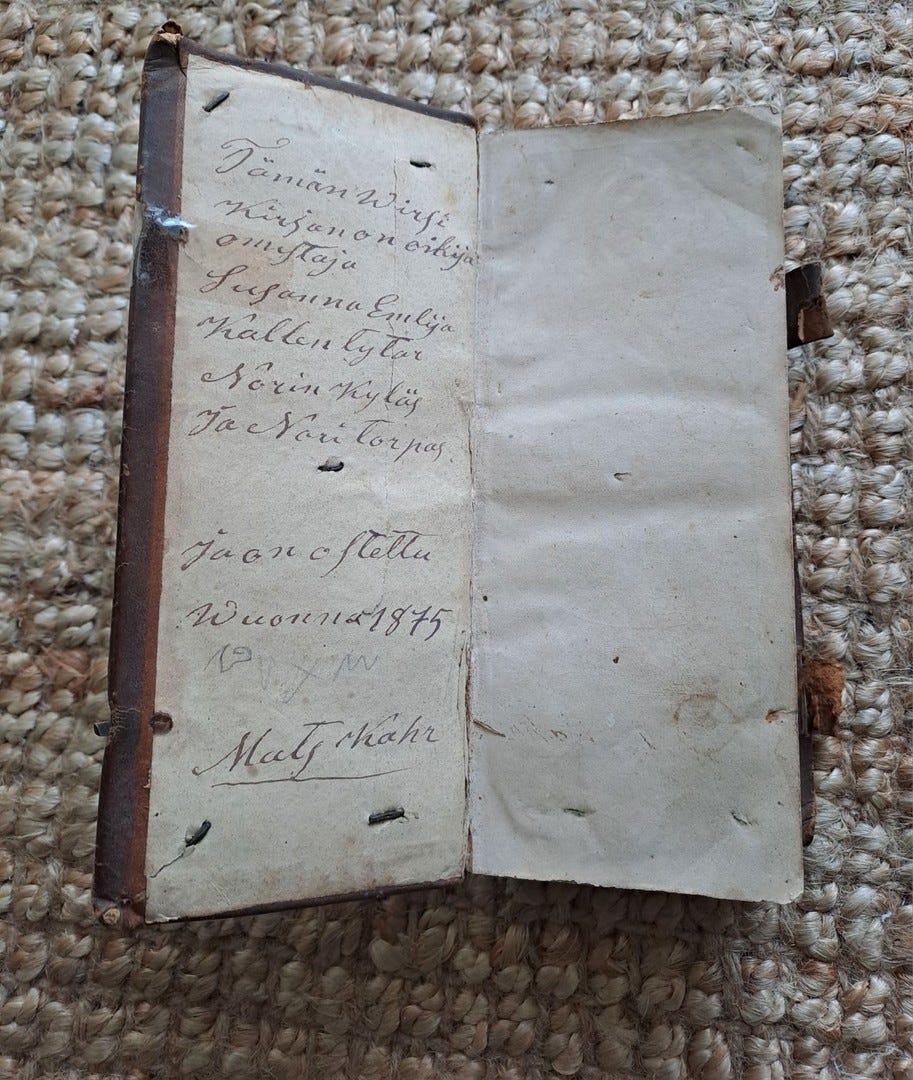 Tämän Wirsi
Kirjan on oikija
omistaja
Susanna Emlija
Kallen tytar
Nörin Kyläs
Ja Nöri torpas
Ja on ostettu
Wuonna 1875
Mats Kahr